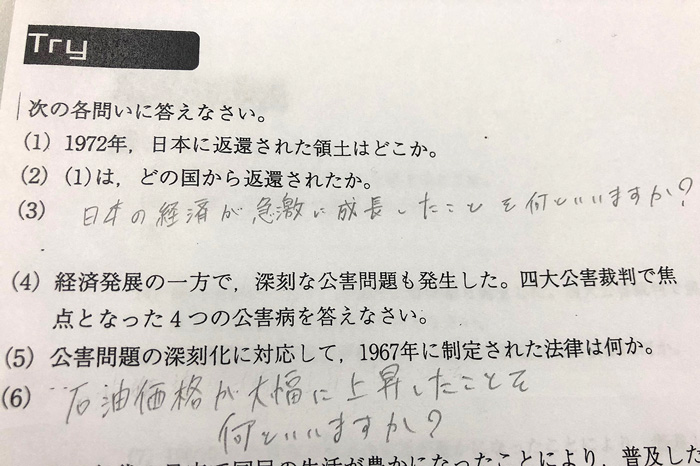 Try
次の各問いに答えなさい。
(1) 1972年，日本に返還された領土はどこか。
(2) (1)は，どの国から返還されたか。
(3) 日本の経済が急激に成長したことを何といいますか?
(4) 経済発展の一方で，深刻な公害問題も発生した。四大公害裁判で焦
点となった4つの公害病を答えなさい。
(5) 公害問題の深刻化に対応して，1967年に制定された法律は何か。
(6) 石油価格が大幅に上昇したことを
何といいますか?
国民の生活が豊かになったことにより，普及した